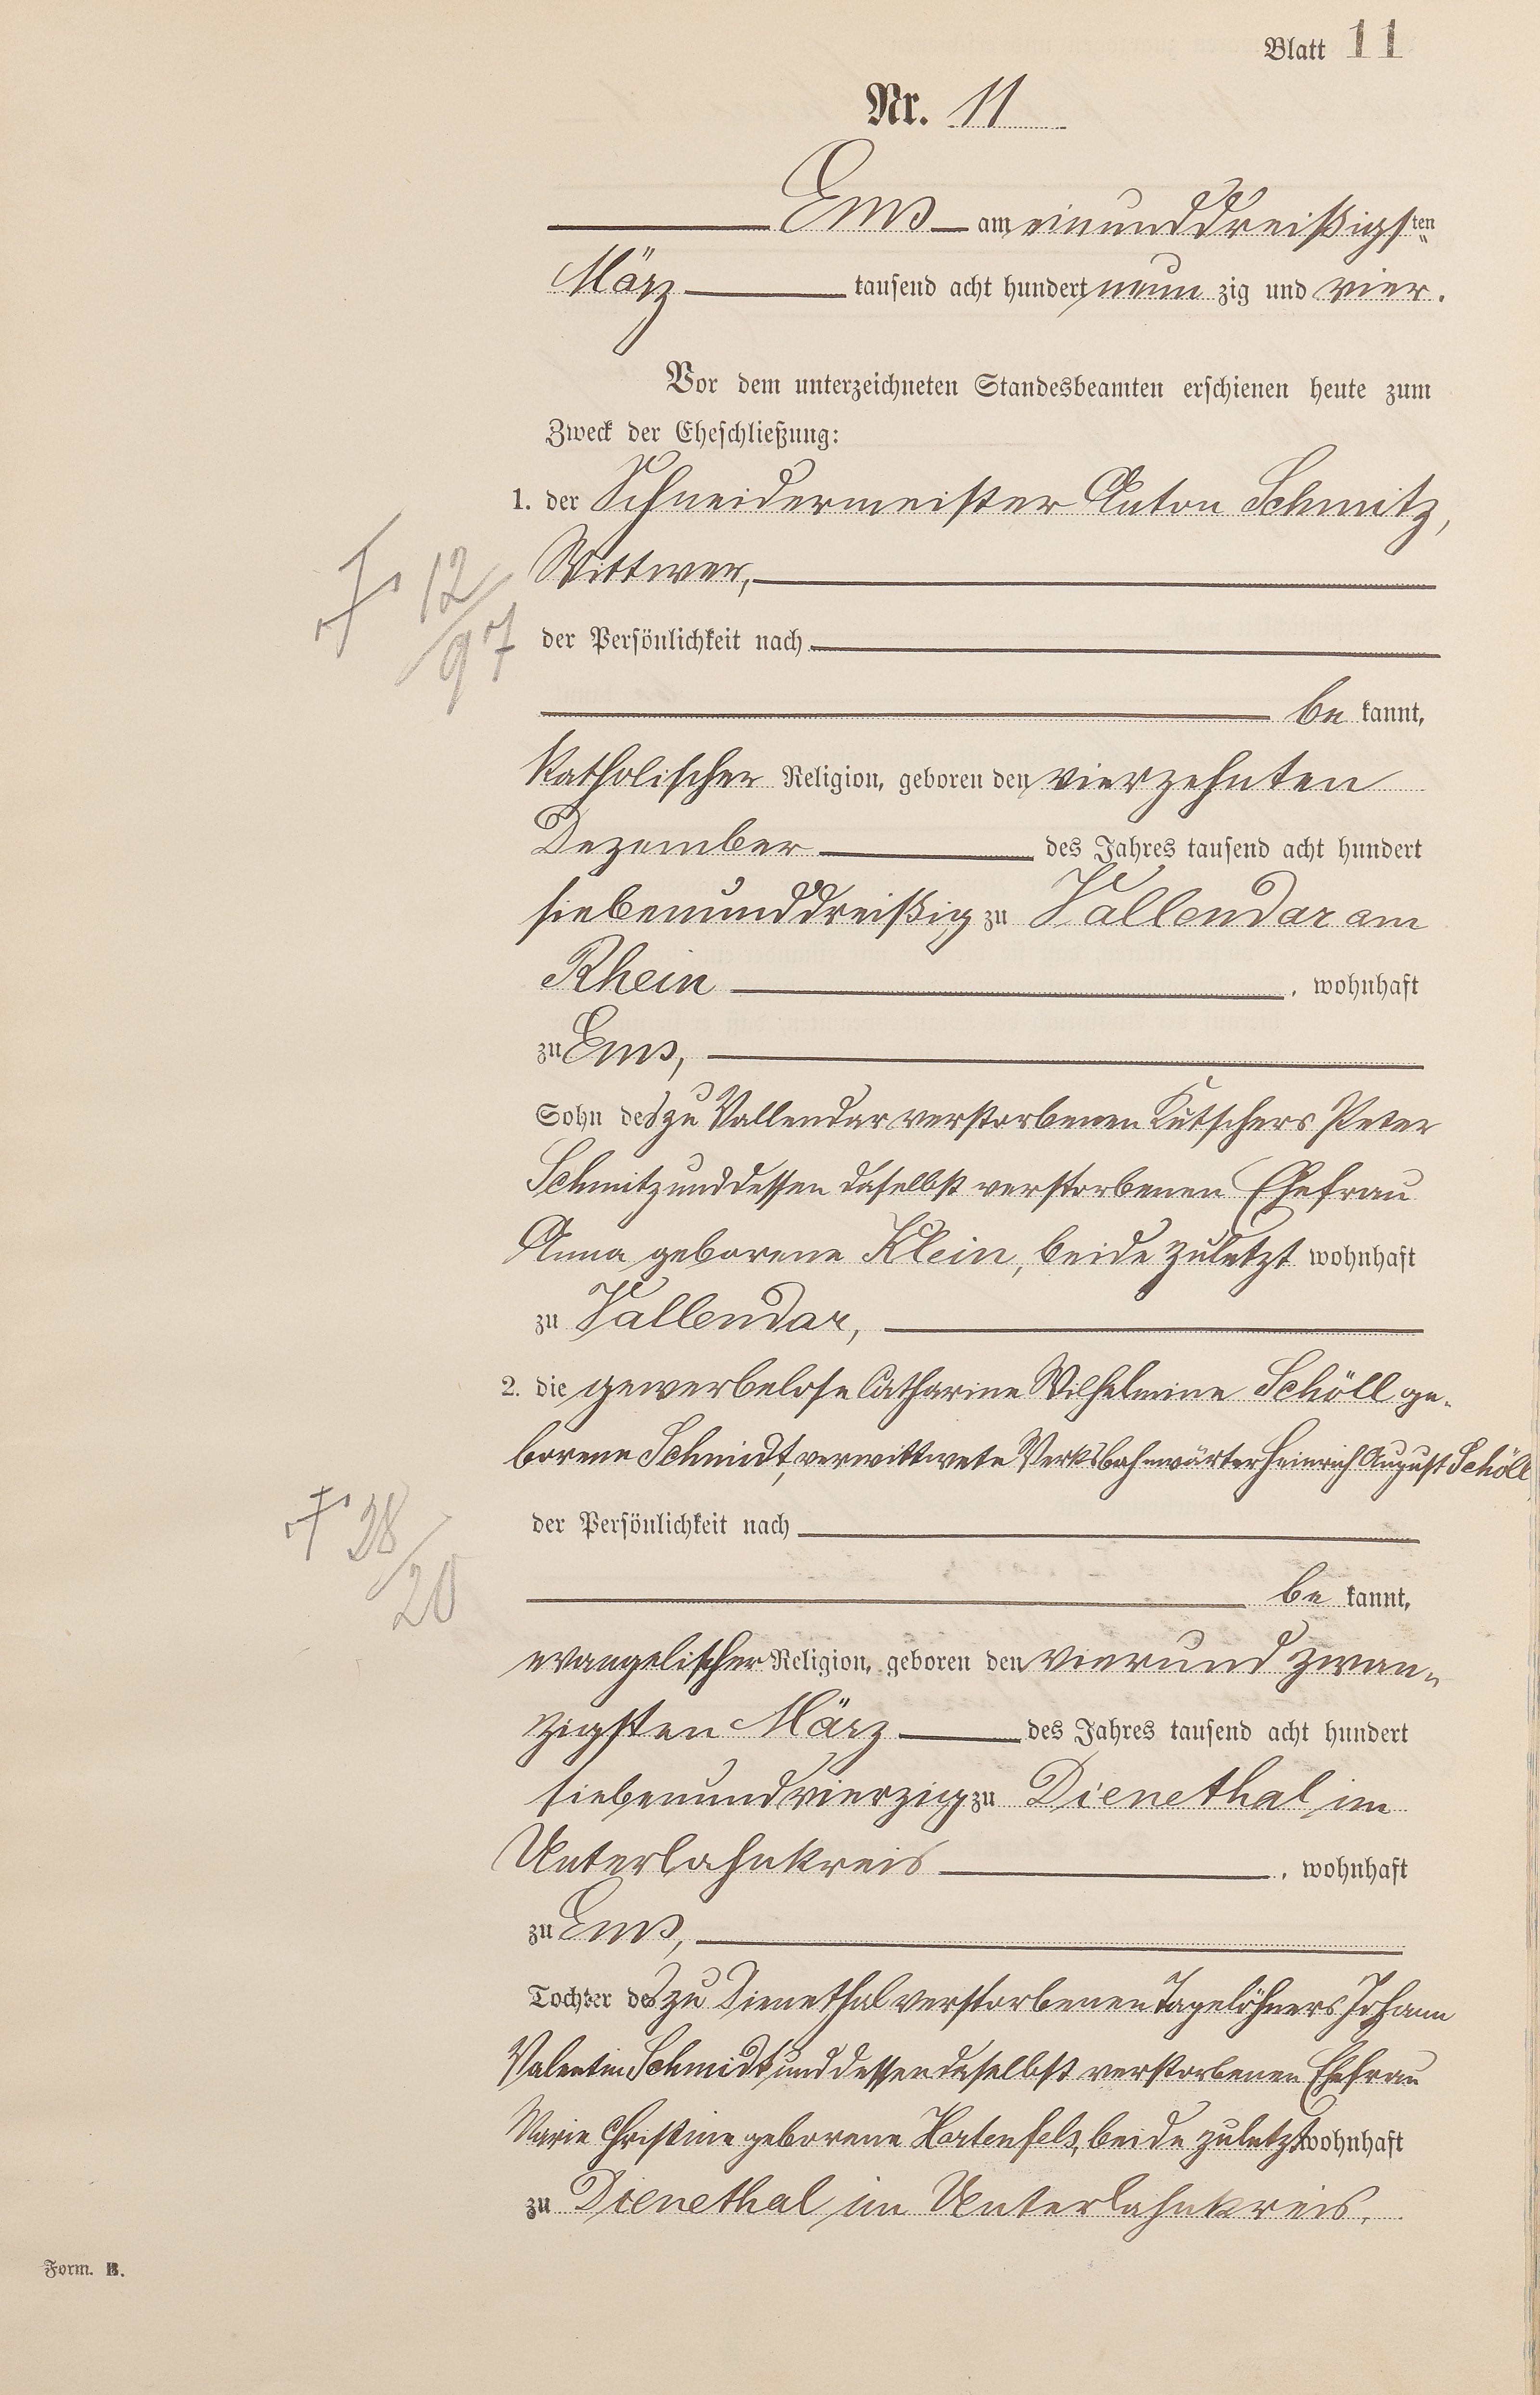 Blatt 11
Nr. 11
Ems am einunddreißigsten
März tausend acht hundert neun zig und vier.
Vor dem unterzeichneten Standesbeamten erschienen heute zum
Zweck der Eheschließung:
1. der Schneidermeister Anton Schmitz,
Wittwer,
† 12/97
der Persönlichkeit nach
be kannt,
katholischer Religion, geboren den vierzehnten
Dezember des Jahres tausend acht hundert
siebenunddreißig zu Vallendar am
Rhein, wohnhaft
zu Ems,
Sohn des zu Vallendar verstorbenen Kutschers Peter
Schmitz und dessen daselbst verstorbenen Ehefrau
Anna geborene Klein, beide zuletzt wohnhaft
zu Vallendar,
2. die gewerbelose Catharine Wilhelmine Schöll ge-
borene Schmidt, verwittwete Werksbahnwärter Heinrich August Schöll,
† 28/20
der Persönlichkeit nach
be kannt,
evangelischer Religion, geboren den vierund zwan-
zigsten März des Jahres tausend acht hundert
siebenundvierzig zu Dienethal im
Unterlahnkreis, wohnhaft
zu Ems,
Tochter des zu Dienethal verstorbenen Tagelöhners Johann
Valentin Schmidt und dessen daselbst verstorbenen Ehefrau
Marie Christine geborene Hartenfels, beide zuletzt wohnhaft
zu Dienethal im Unterlahnkreis.
Form. B.